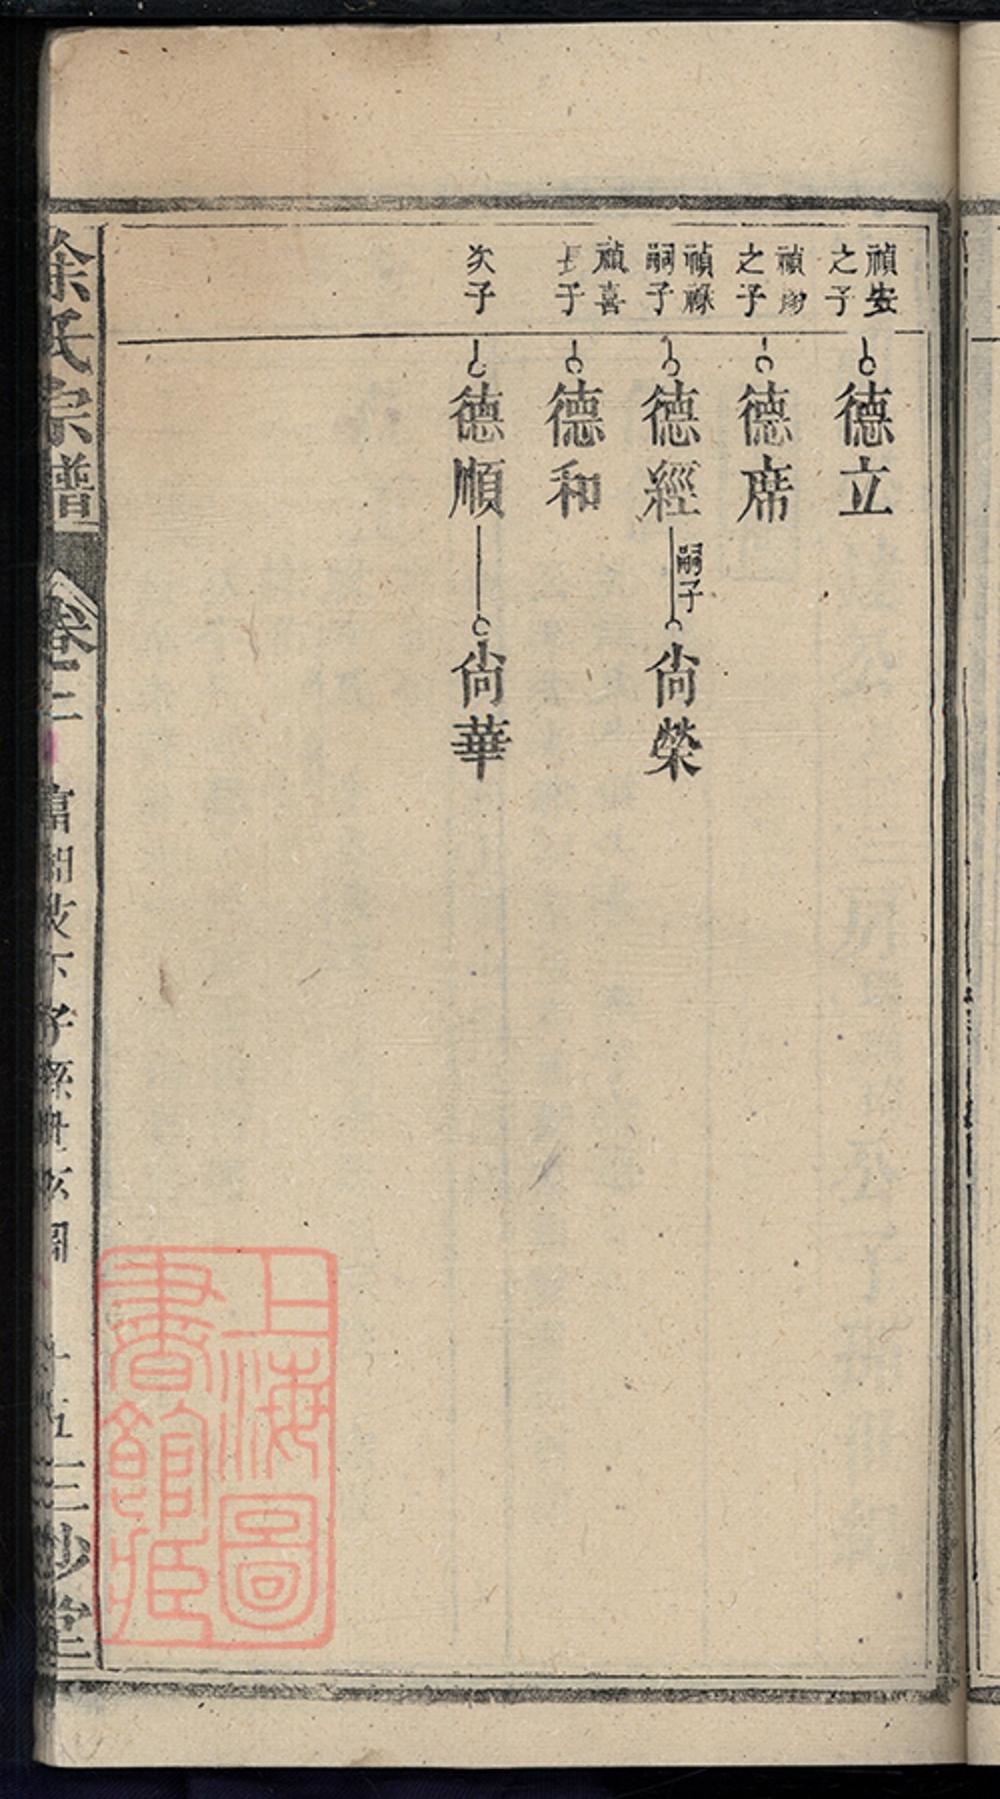 禎安
之子
德立
禎
之子
德席
禎祿
嗣子
德經
嗣子
尙榮
禎喜
長子
德和
次子
德順
尙華
徐氏宗譜
卷二
富開攻下子孫世次圖
十五
三妙堂
上海圖
書館藏